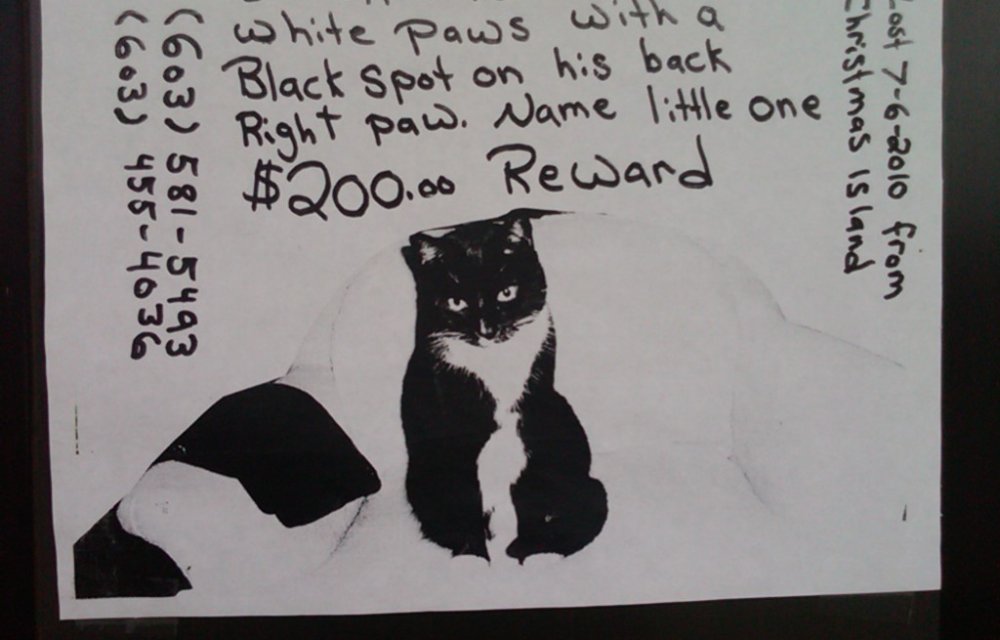 white paws with a
Black spot on his back
Right paw. Name little one
$200.00 Reward
(603) 581-5493
(603) 455-4036
Lost 7-6-2010 from
Christmas Island